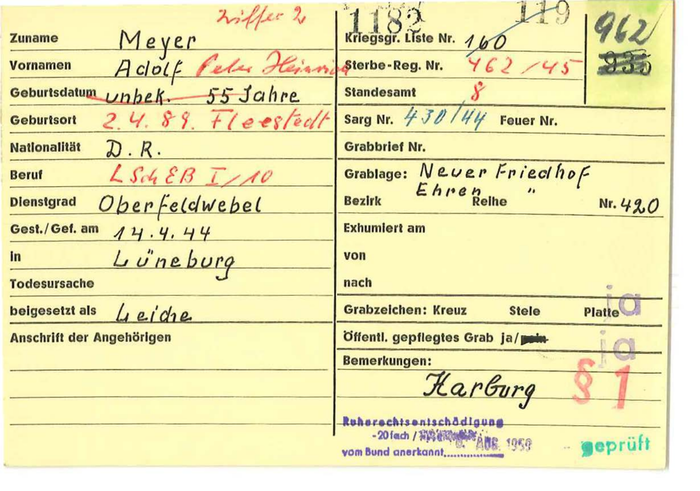 Ziffer 2
1182 119
962
935
Zuname Meyer
Vornamen Adolf Peter Heinrich
Geburtsdatum unbek. 55 Jahre
Geburtsort 2.4.89. Fleestedt
Nationalität D.R.
Beruf LSchEB I/10
Dienstgrad Oberfeldwebel
Gest./Gef. am 14.4.44
in Lüneburg
Todesursache
beigesetzt als Leiche
Anschrift der Angehörigen
Kriegsgr. Liste Nr. 160
Sterbe-Reg. Nr. 462/45
Standesamt 8
Sarg Nr. 430/44 Feuer Nr.
Grabbrief Nr.
Grablage: Neuer Friedhof
Ehren "
Bezirk Reihe Nr. 420
Exhumiert am
von
nach
Grabzeichen: Kreuz Stele Platte ja
Öffentl. gepflegtes Grab ja/nein ja
Bemerkungen:
Harburg § 1
Ruherechtsentschädigung
-20fach /
vom Bund anerkannt AUG. 1959
geprüft